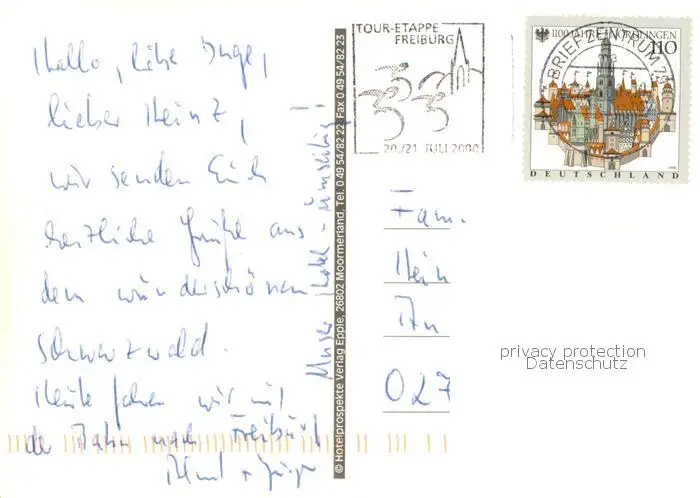 Hallo, liebe Inge,
lieber Heinz,
wir senden Euch
herzliche Grüße aus
dem wunderschönen
Schwarzwald.
Heute fahren wir mit
der Bahn nach Freiburg
Unser Hotel - umseitig!
© Hotelprospekte Verlag Epple, 26802 Moormerland, Tel. 0 49 54/82 22, Fax 0 49 54/82 23
TOUR-ETAPPE
FREIBURG
20./21. JULI 2000
BRIEFZENTRUM 79
1100 JAHRE NÖRDLINGEN
110
DEUTSCHLAND
Fam.
Hein
027
privacy protection
Datenschutz